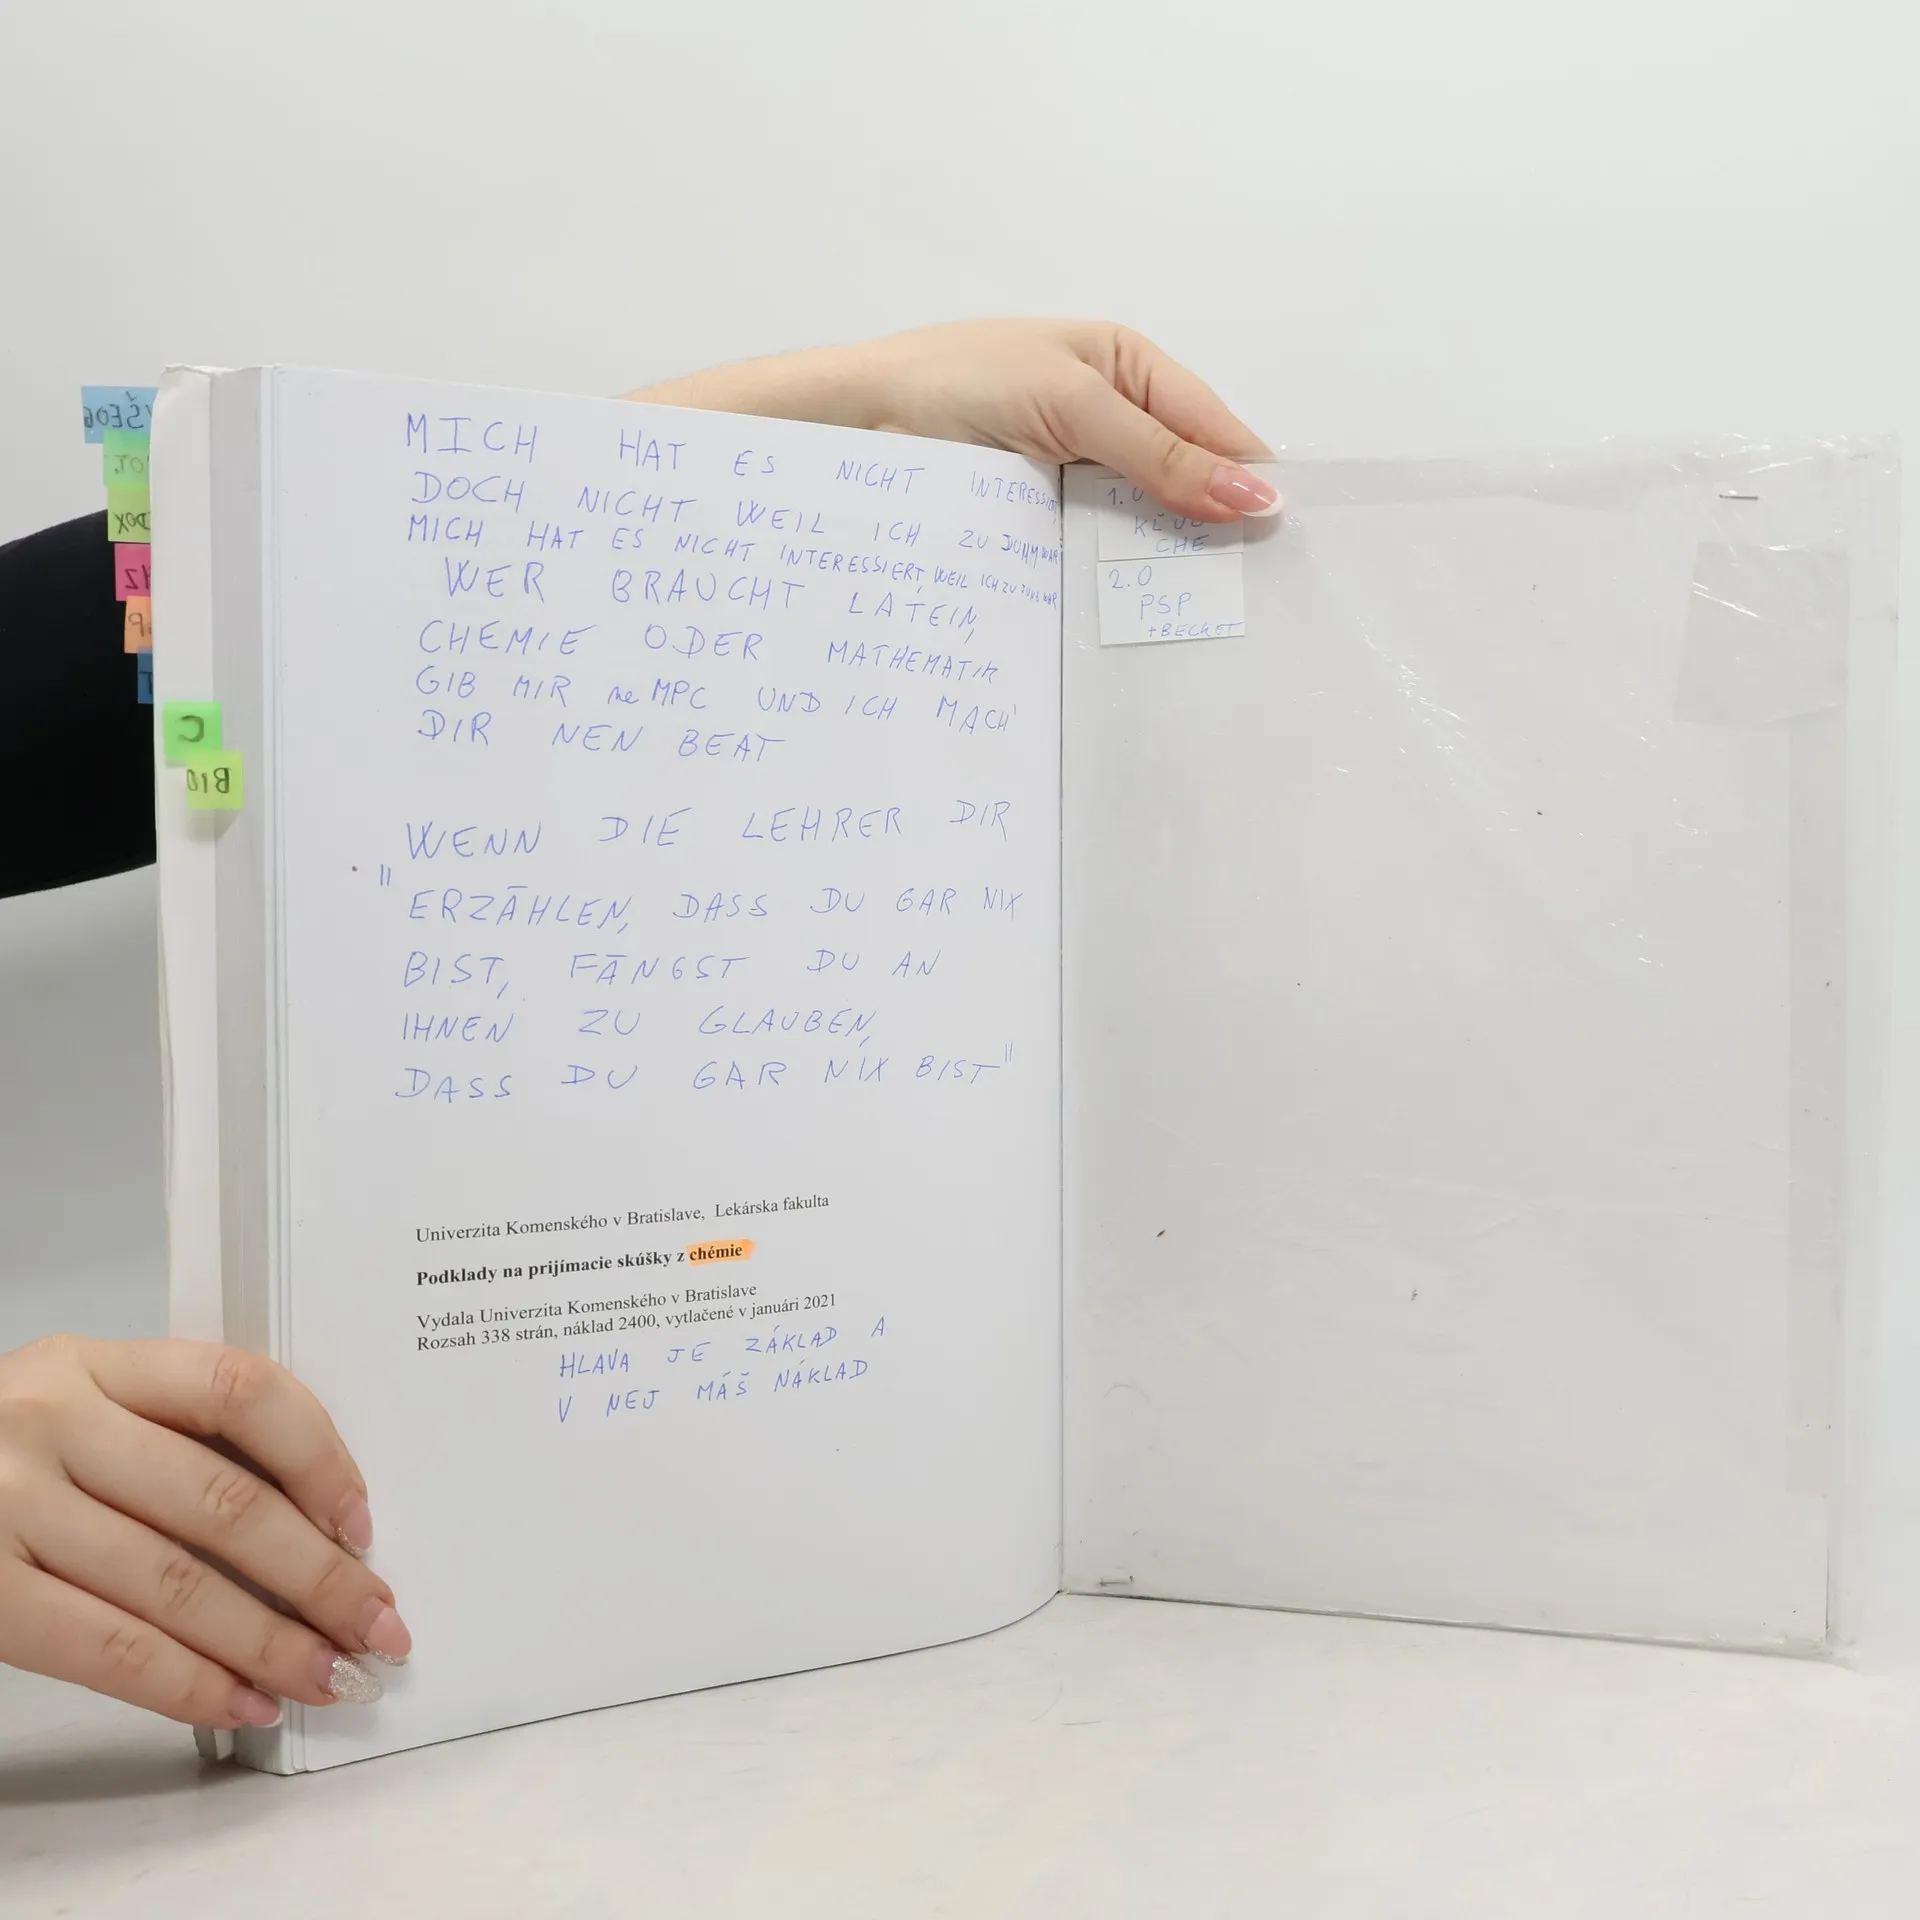 MICH HAT ES NICHT INTERESSIERT,
DOCH NICHT WEIL ICH ZU DUMM WAR
MICH HAT ES NICHT INTERESSIERT, WEIL ICH ZU JUNG WAR
WER BRAUCHT LATEIN,
CHEMIE ODER MATHEMATIK
GIB MIR ne MPC UND ICH MACH'
DIR NEN BEAT
WENN DIE LEHRER DIR
"ERZÄHLEN, DASS DU GAR NIX
BIST, FÄNGST DU AN
IHNEN ZU GLAUBEN,
DASS DU GAR NIX BIST"
Univerzita Komenského v Bratislave, Lekárska fakulta
Podklady na prijímacie skúšky z chémie
Vydala Univerzita Komenského v Bratislave
Rozsah 338 strán, náklad 2400, vytlačené v januári 2021
HLAVA JE ZÁKLAD A
V NEJ MÁŠ NÁKLAD
1.
CHE
2.0
PSP
+BECKET
VŠEOB
C
BIO